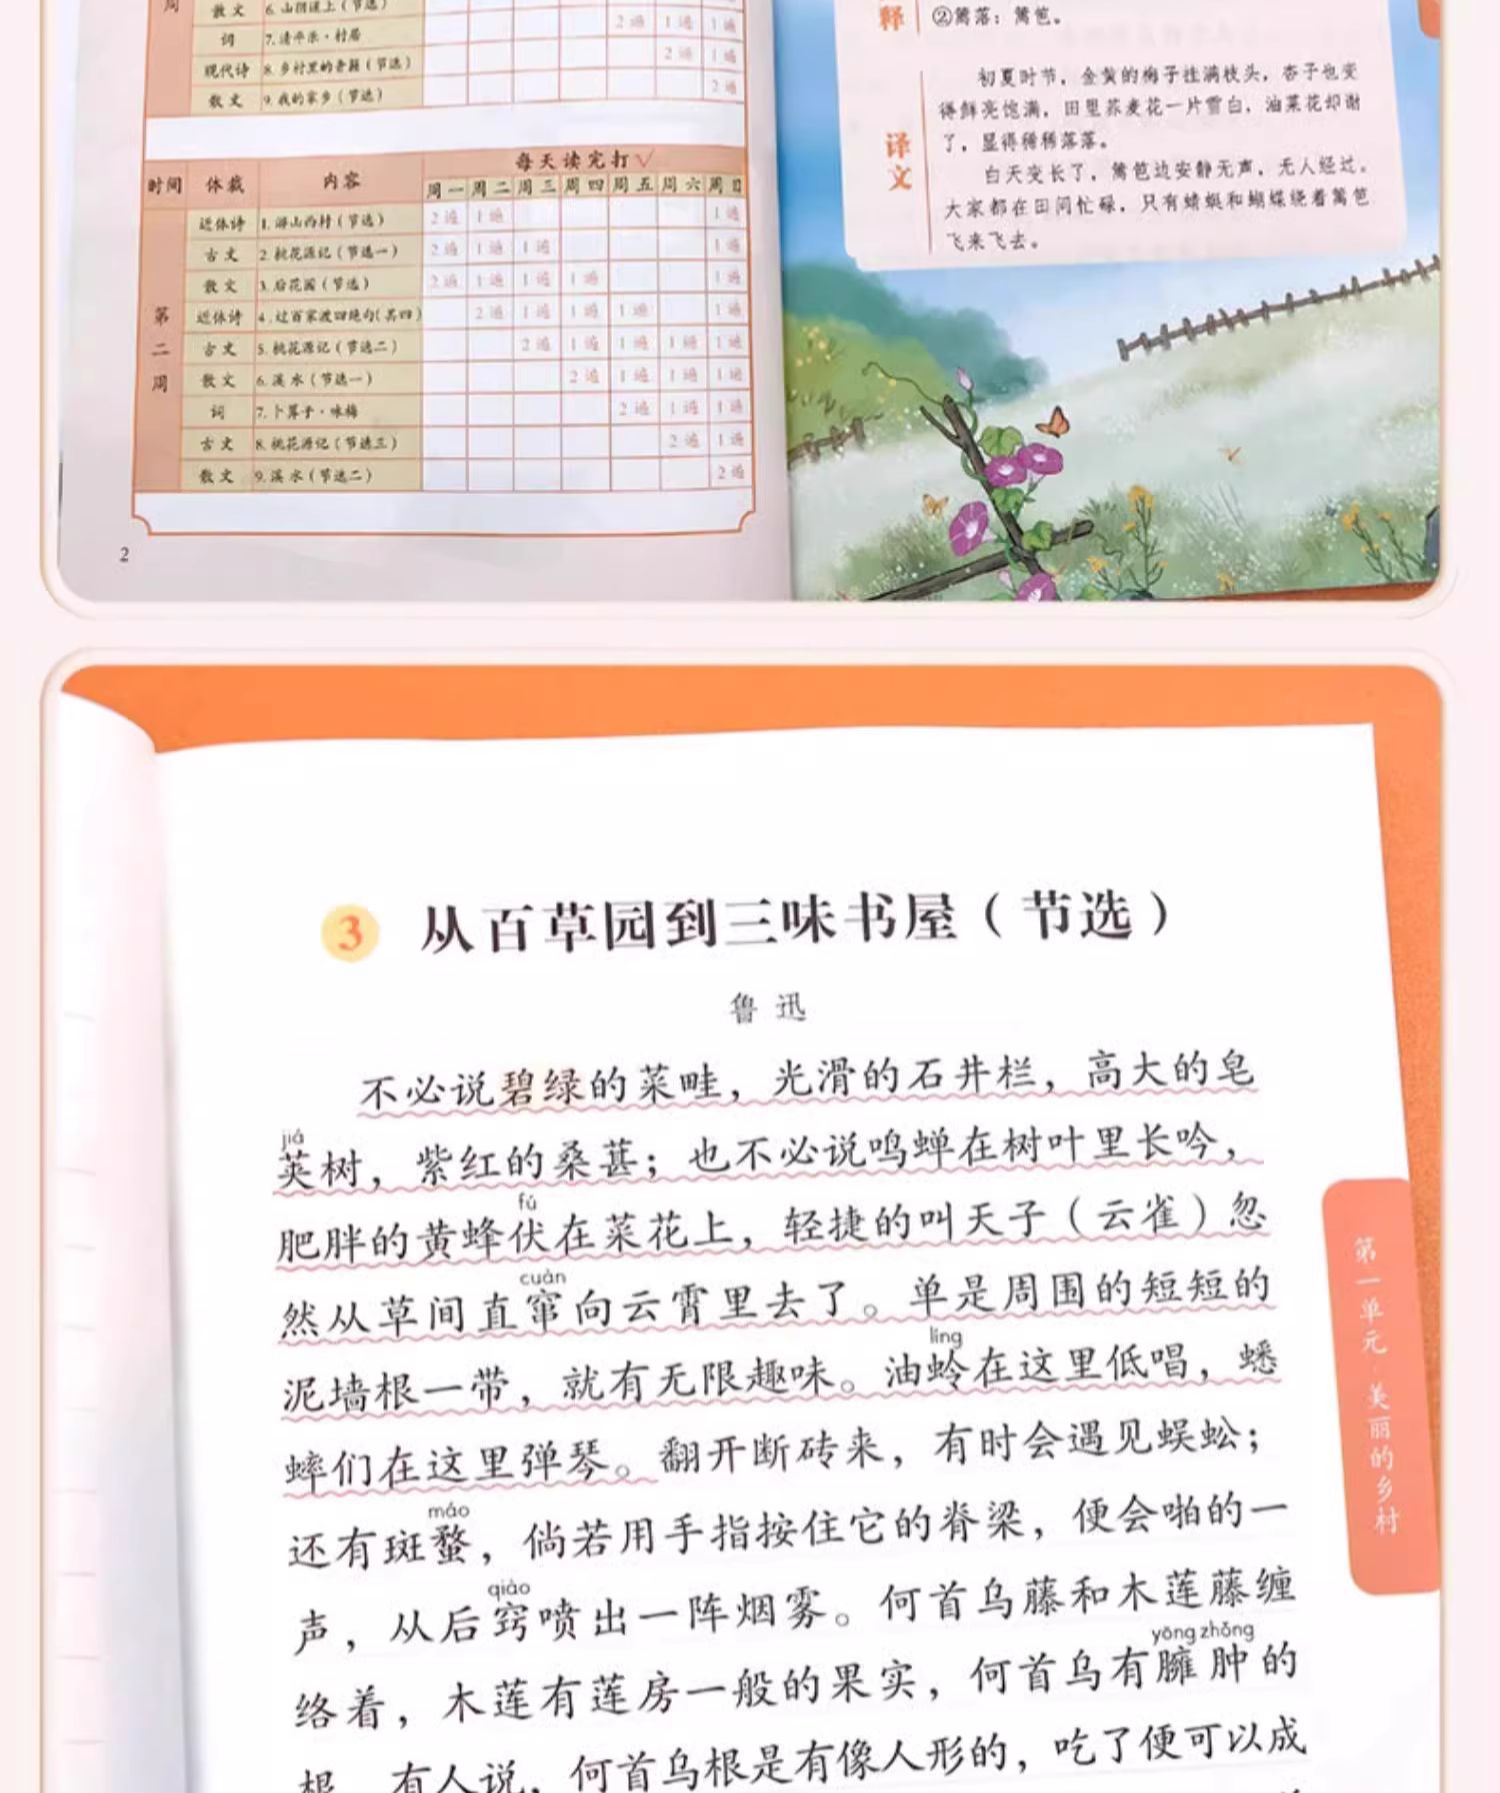 周
散文 6.山阴道上(节选)
词 7.清平乐·村居 2遍 1遍 1遍
现代诗 8.乡村里的老鼠(节选) 2遍 1遍
散文 9.我的家乡(节选) 2遍
时间 体裁 内容 每天读完打√
周一 周二 周三 周四 周五 周六 周日
第二周
近体诗 1.游山西村(节选) 2遍 1遍 1遍
古文 2.桃花源记(节选一) 2遍 1遍 1遍 1遍
散文 3.后花园(节选) 2遍 1遍 1遍 1遍 1遍
近体诗 4.过百家渡四绝句(其四) 2遍 1遍 1遍 1遍 1遍
古文 5.桃花源记(节选二) 2遍 1遍 1遍 1遍 1遍
散文 6.溪水(节选一) 2遍 1遍 1遍 1遍
词 7.卜算子·咏梅 2遍 1遍 1遍
古文 8.桃花源记(节选三) 2遍 1遍
散文 9.溪水(节选二) 2遍
2
释 ②篱落：篱笆。
译文
初夏时节，金黄的梅子挂满枝头，杏子也变
得鲜亮饱满，田里荞麦花一片雪白，油菜花却谢
了，显得稀稀落落。
白天变长了，篱笆边安静无声，无人经过。
大家都在田间忙碌，只有蜻蜓和蝴蝶绕着篱笆
飞来飞去。
3 从百草园到三味书屋（节选）
鲁迅
不必说碧绿的菜畦，光滑的石井栏，高大的皂
jiá
荚树，紫红的桑葚；也不必说鸣蝉在树叶里长吟，
fú
肥胖的黄蜂伏在菜花上，轻捷的叫天子（云雀）忽
cuàn
然从草间直窜向云霄里去了。单是周围的短短的
líng
泥墙根一带，就有无限趣味。油蛉在这里低唱，蟋
蟀们在这里弹琴。翻开断砖来，有时会遇见蜈蚣；
máo
还有斑蝥，倘若用手指按住它的脊梁，便会啪的一
qiào
声，从后窍喷出一阵烟雾。何首乌藤和木莲藤缠
yōng zhǒng
络着，木莲有莲房一般的果实，何首乌有臃肿的
根。有人说，何首乌根是有像人形的，吃了便可以成
第一单元 美丽的乡村